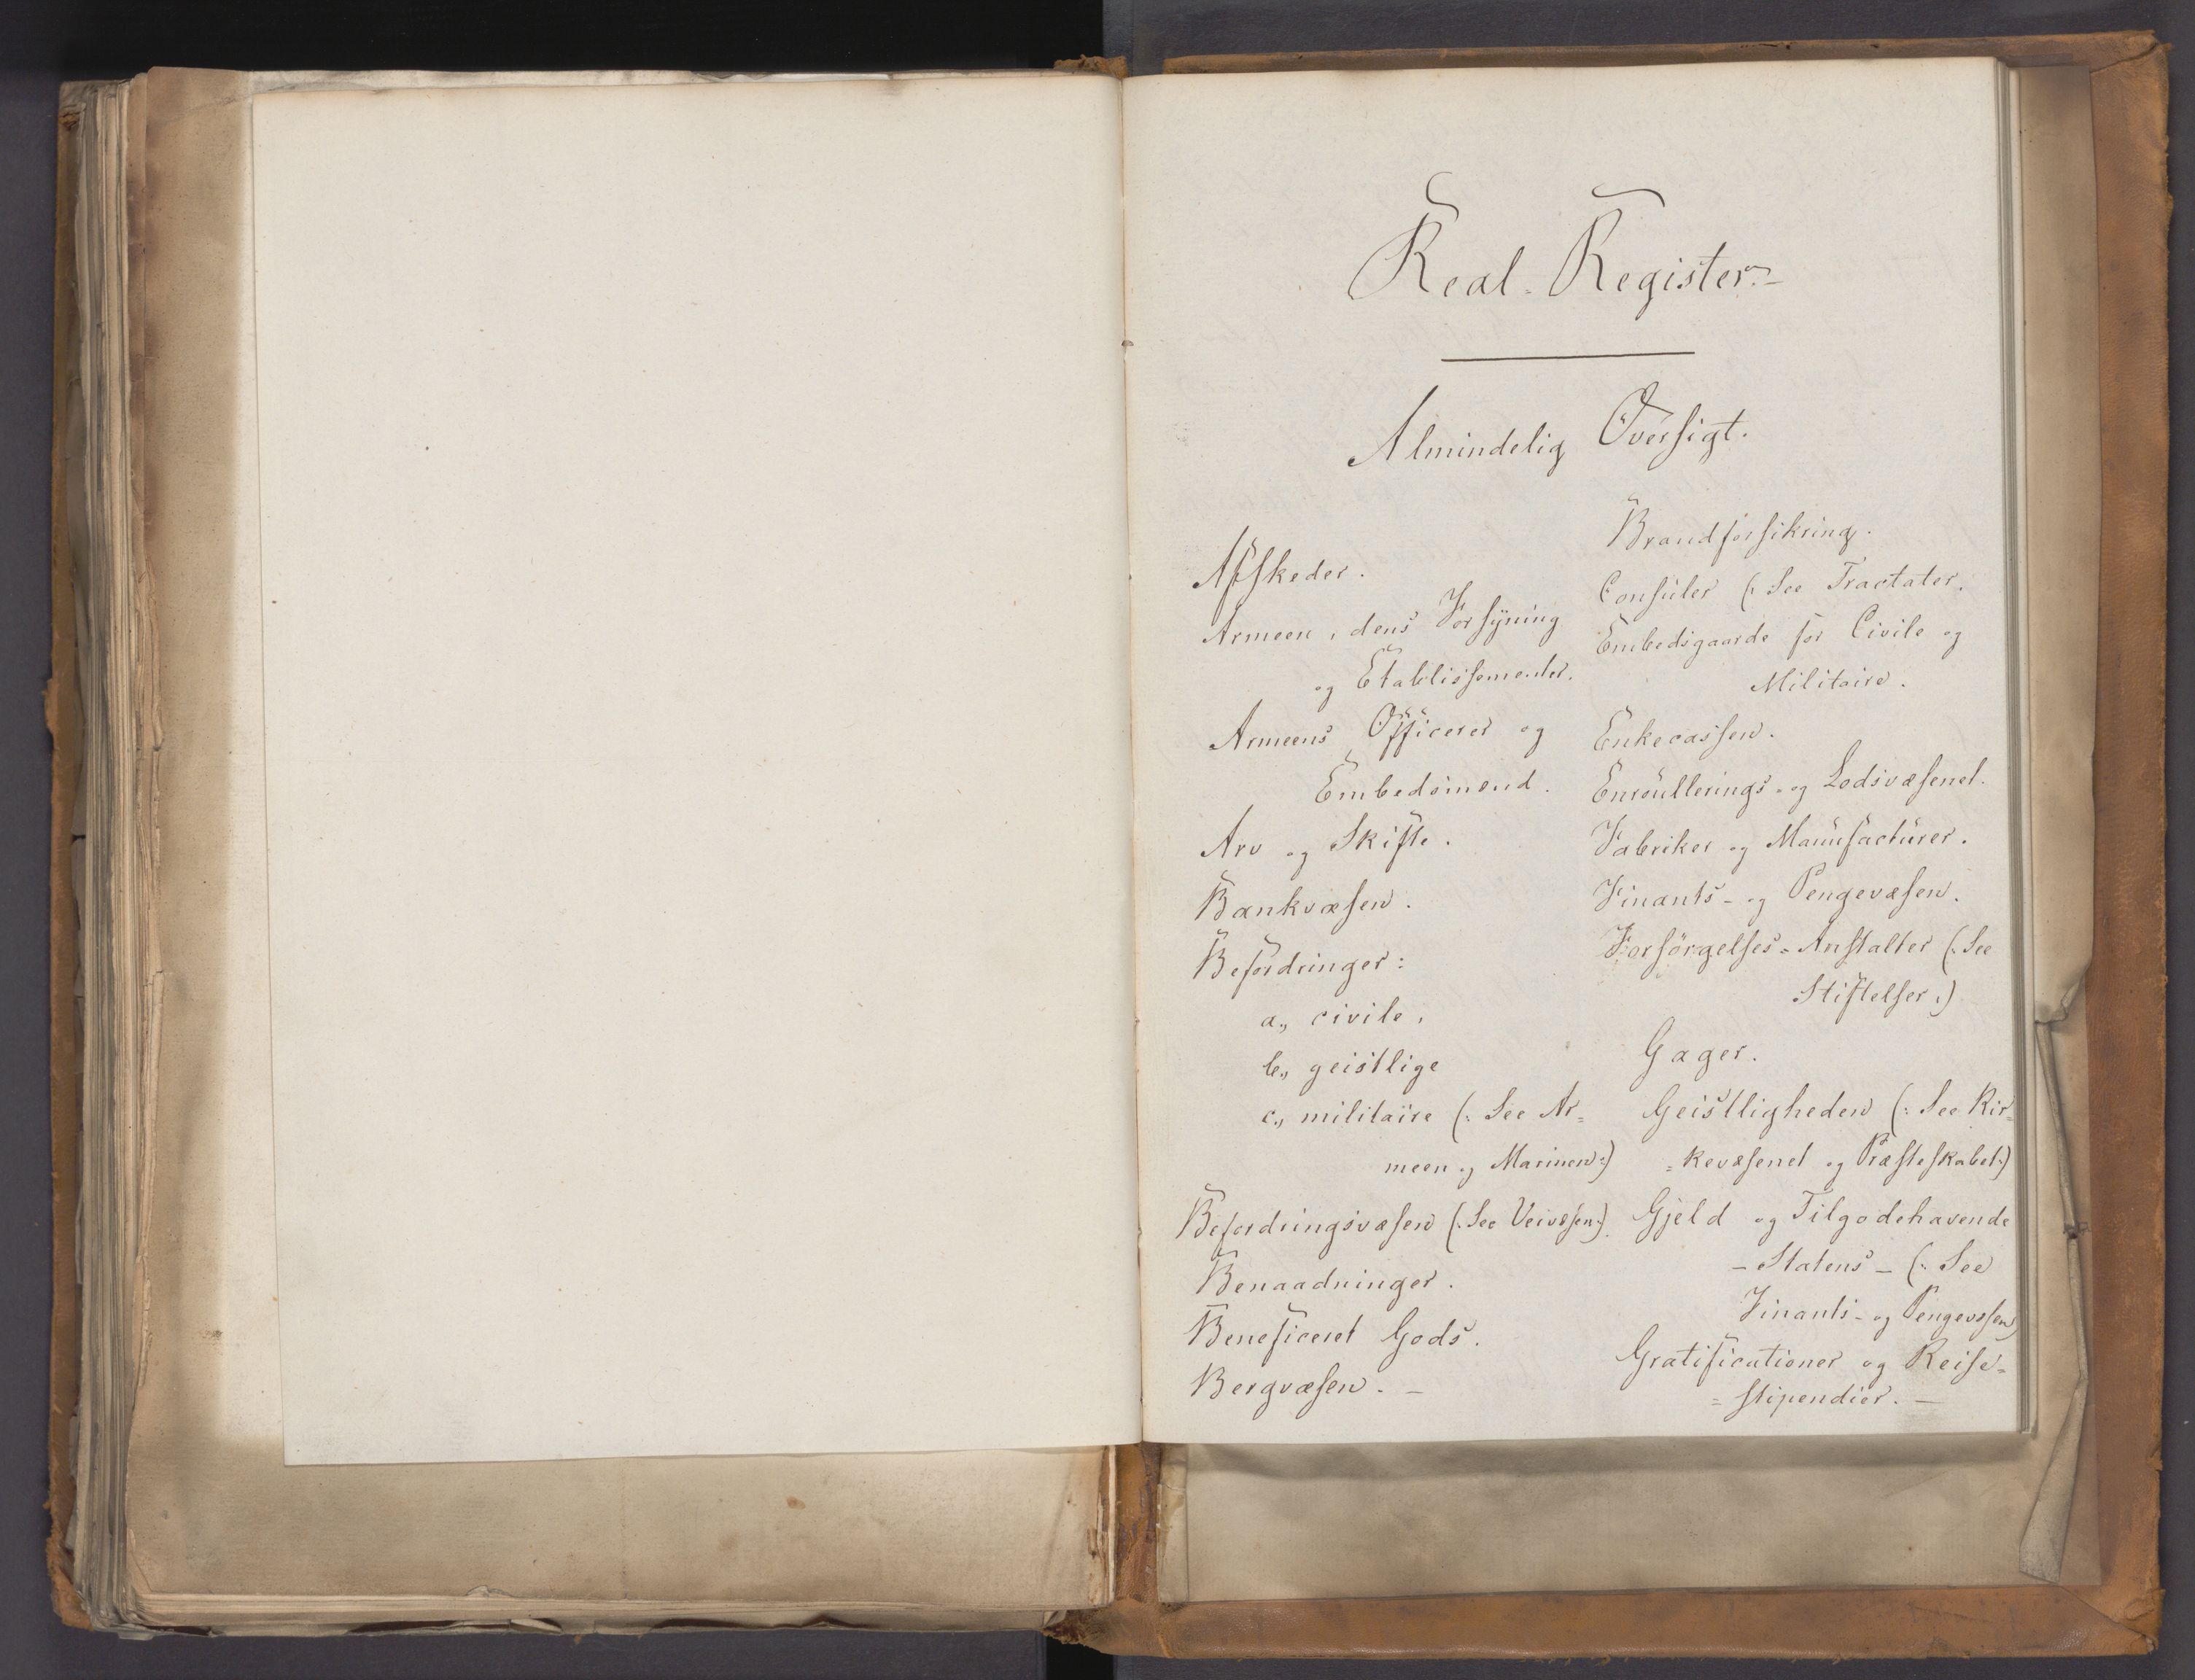 Real-Register.
Almindelig Oversigt.
Afskeder.
Armeen, dens Forsyning
og Etablissementer.
Armeens Officerer og
Embedsmænd.
Arv og Skifte.
Bankvæsen.
Befordringer:
a., civile,
b., geistlige
c., militaire (: See Ar=
meen og Marinen:)
Befordringsvæsen (: See Veivæsen:)
Benaadninger.
Beneficeret Gods.
Bergvæsen. –
Brandforsikring.
Consuler (: See Tractater.
Embedsgaarde for Civile og
Militaire.
Enkecassen.
Enroullerings- og Lodsvæsenet.
Fabriker og Manufacturer.
Finants- og Pengevæsen.
Forsörgelses-Anstalter (: See
Stiftelser:)
Gager.
Geistligheden (: See Kir=
=kevæsenet og Præsteskabet:)
Gjeld og Tilgodehavende
– Statens – (: See
Finants- og Pengevæsen)
Gratificationer og Reise=
=stipendier. –